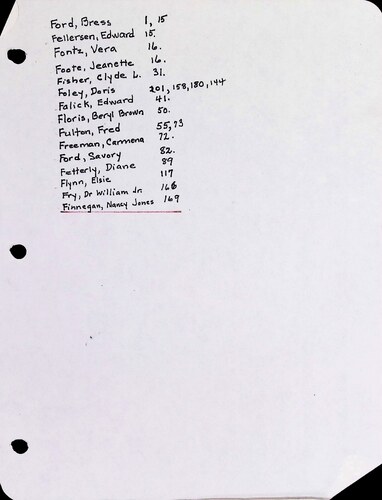 Ford, Bress 1, 15
Fellersen, Edward 15.
Fontz, Vera 16.
Foote, Jeanette 16.
Fisher, Clyde L. 31.
Foley, Doris 201, 158, 180, 144
Falick, Edward 41.
Floris, Beryl Brown 50.
Fulton, Fred 55, 73
Freeman, Carmena 72.
Ford, Savory 82.
Fetterly, Diane 89
Flynn, Elsie 117
Fry, Dr William Jr. 166
Finnegan, Nancy Jones 169